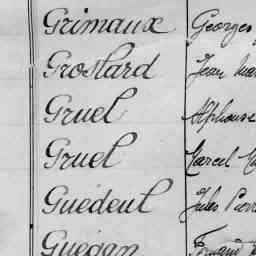 Grimaux Georges
Grostard Jean
Gruel Alphonse
Gruel Marcel
Guédeul Jules Pierre
Guégan Fernand